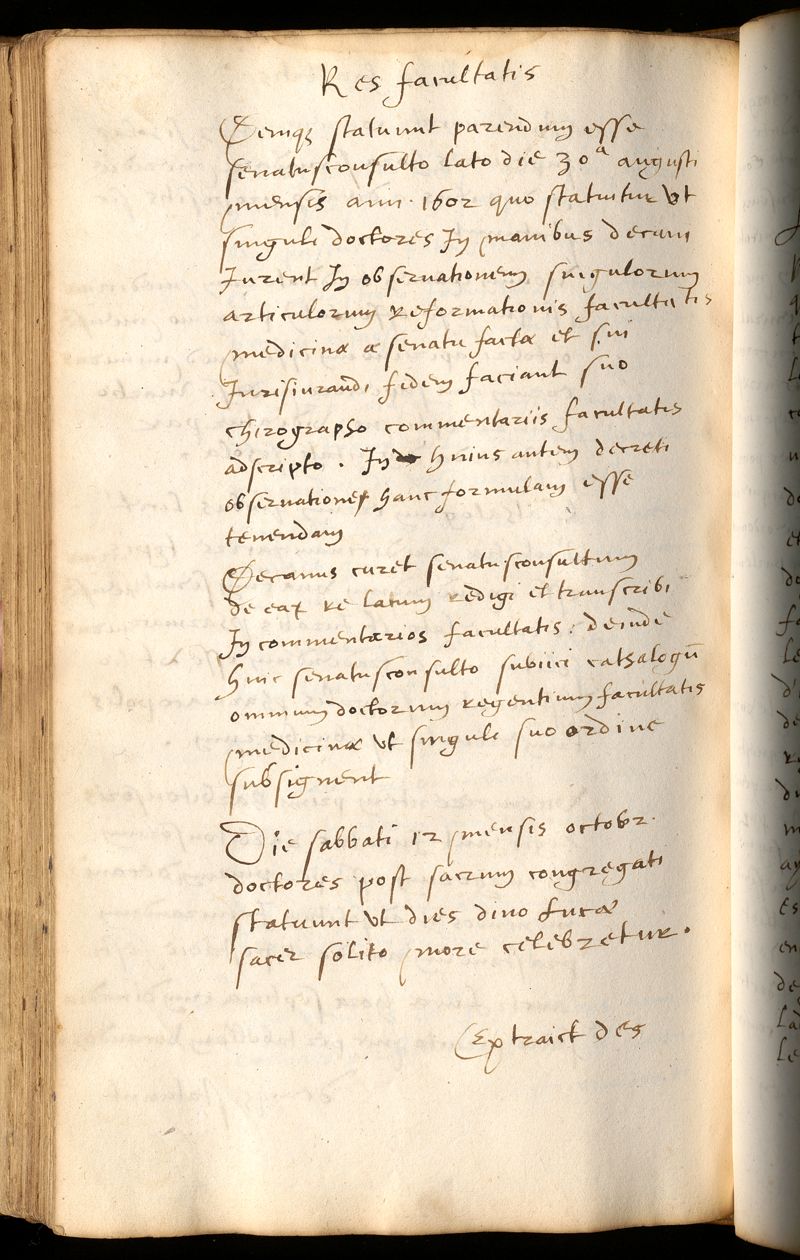 Res facultatis
Demq; statuunt parendum esse
senatusconsulto lato die 30ª augusti
mensis ann. 1602 quo statuitur vt
singuli doctores In manibus decani
Iurent In observationem singulorum
articulorum reformationis facultatis
medicinæ a senatu factæ et sui
Iurisiurandi fidem faciant suo
chirographo commentariis facultatis
adscripto. In huius autem decreti
observatione hanc formulam esse
tenendam
Decanus curet senatusconsultum
de ea re latum redigi et transcribi
In commentarios facultatis: deinde
huic senatusconsulto subiici cathalogū
omnium doctorum regentium facultatis
medicinæ vt singuli suo ordine
subsignent
Die sabbati 12 mensis octobr.
doctores post sacrum congregati
statuunt vt dies divo Lucæ
sacer solito more celebretur.
Extraict des